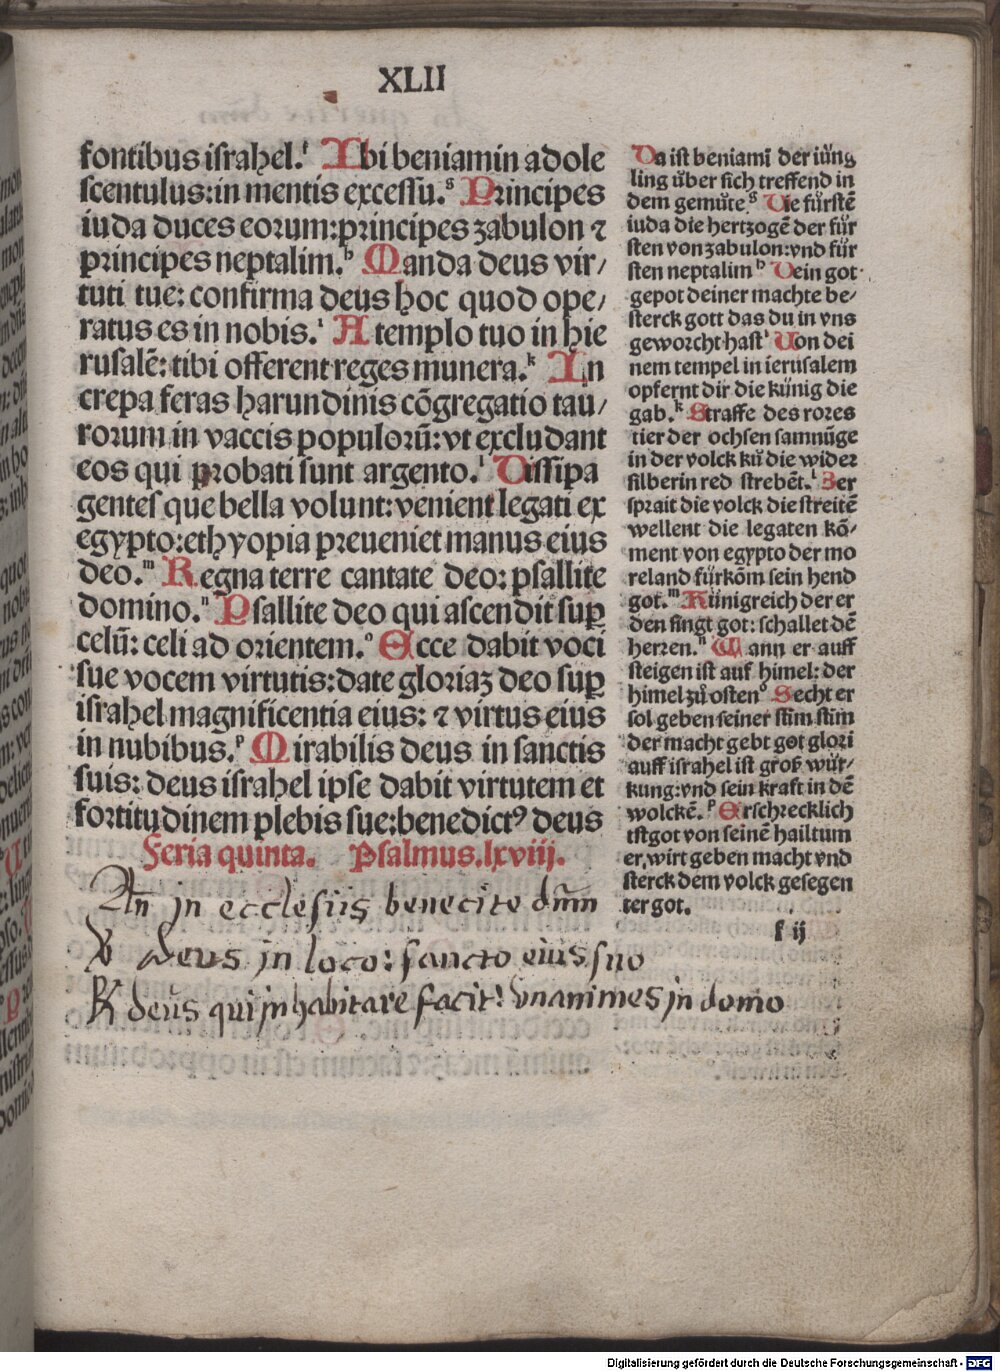 XLII
fontibus israhel.ᶠ Ibi beniamin adole
scentulus:in mentis excessu.ᵍ Principes
iuda duces eorum:principes zabulon ⁊
principes neptalim.ʰ Manda deus vir/
tuti tue: confirma deus hoc quod ope/
ratus es in nobis.ⁱ A templo tuo in hie
rusalē: tibi offerent reges munera.ᵏ In
crepa feras harundinis cōgregatio tau/
rorum in vaccis populorū: vt excludant
eos qui probati sunt argento.ˡ Dissipa
gentes que bella volunt: venient legati ex
egypto:ethyopia preueniet manus eius
deo.ᵐ Regna terre cantate deo: psallite
domino.ⁿ Psallite deo qui ascendit suꝑ
celū: celi ad orientem.ᵒ Ecce dabit voci
sue vocem virtutis:date gloriaꝫ deo suꝑ
israhel magnificentia eius: ⁊ virtus eius
in nubibus.ᵖ Mirabilis deus in sanctis
suis: deus israhel ipse dabit virtutem et
fortitudinem plebis sue:benedictꝰ deus
Feria quinta. Psalmus.lxviij.
An in ecclesiis benecite dm̄m
V deus in loco: sancto eius suo
R deus qui inhabitare facit: vnanimes in domo
Da ist beniamī der iüng
ling über sich treffend in
dem gemüte.ᵍ Die fürstē
iuda die hertzogē der für
sten von zabulon:vnd für
sten neptalim ʰ Dein got
gepot deiner machte be-
sterck gott das du in vns
geworcht hastⁱ Von dei
nem tempel in ierusalem
opfernt dir die künig die
gab.ᵏ Straffe des rores
tier der ochsen samnūge
in der volck kü die wider
silberin red strebēt.ˡ Zer
sprait die volck die streitē
wellent die legaten kō-
ment von egypto der mo
reland fürkōm sein hend
got.ᵐ Künigreich der er
den singt got: schallet dē
herren.ⁿ Wann er auff
steigen ist auf himel: der
himel zů ostenᵒ Secht er
sol geben seiner stim stim
der macht gebt got glori
auff israhel ist groß wür/
kung:vnd sein kraft in dē
wolckē.ᵖ Erschrecklich
istgot von seinē hailtum
er, wirt geben macht vnd
sterck dem volck gesegen
ter got.
f ij
Digitalisierung gefördert durch die Deutsche Forschungsgemeinschaft - DFG